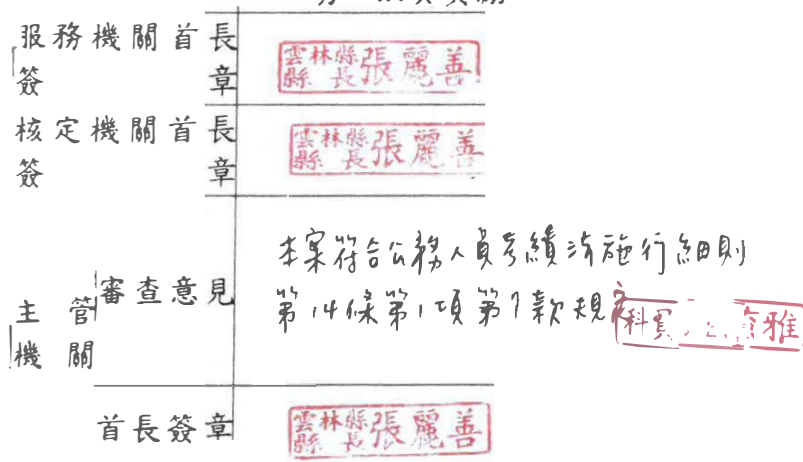 服務機關首長
簽章
雲林縣縣長張麗善
核定機關首長
簽章
雲林縣縣長張麗善
主管機關
審查意見
本案符合公務人員考績法施行細則
第14條第1項第7款規定
科員
雅
首長簽章
雲林縣縣長張麗善